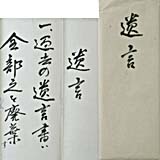 遺言
遺言
一、過去の遺言書ハ
全部之を廃棄